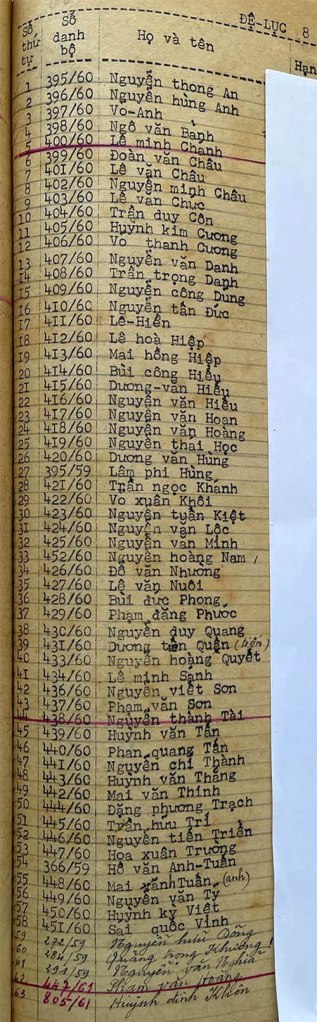 ĐỆ-LỤC 8
Số thứ tự
Số danh bộ
Họ và tên
Hạn
1 395/60 Nguyễn thong An
2 396/60 Nguyễn hùng Anh
3 397/60 Vo-Anh
4 398/60 Ngô văn Bảnh
5 400/60 Lê minh Chanh
6 399/60 Đoàn văn Châu
7 401/60 Lê văn Châu
8 402/60 Nguyễn minh Châu
9 403/60 Lê văn Chưc
10 404/60 Trần duy Côn
11 405/60 Huỳnh kim Cương
12 406/60 Vo thanh Cương
13 407/60 Nguyễn văn Danh
14 408/60 Trần trọng Danh
15 409/60 Nguyễn công Dung
16 410/60 Nguyễn tấn Đức
17 411/60 Lê-Hiền
18 412/60 Lê hoà Hiệp
19 413/60 Mai hồng Hiệp
20 414/60 Bùi công Hiếu
21 415/60 Dương-văn Hiếu
22 416/60 Nguyễn văn Hiếu
23 417/60 Nguyễn văn Hoan
24 418/60 Nguyễn văn Hoàng
25 419/60 Nguyễn thai Học
26 420/60 Dương văn Hùng
27 395/59 Lâm phi Hùng
28 421/60 Trần ngọc Khánh
29 422/60 Vo xuân Khôi
30 423/60 Nguyễn tuấn Kiệt
31 424/60 Nguyễn văn Lộc
32 425/60 Nguyễn văn Minh
33 452/60 Nguyễn hoàng Nam
34 426/60 Đỗ văn Nhương
35 427/60 Lê văn Nuôi
36 428/60 Bùi đưc Phong
37 429/60 Phạm đăng Phước
38 430/60 Nguyễn duy Quang
39 431/60 Dương tấn Quận
40 433/60 Nguyễn hoàng Quyết
41 434/60 Lê minh Sanh
42 436/60 Nguyễn viết Sơn
43 437/60 Phạm văn Sơn
44 438/60 Nguyễn thành Tài
45 439/60 Huỳnh văn Tân
46 440/60 Phan quang Tấn
47 441/60 Nguyễn chi Thành
48 443/60 Huỳnh văn Thắng
49 442/60 Mai văn Thinh
50 444/60 Đặng phương Trạch
51 445/60 Trần hưu Trí
52 446/60 Nguyễn tiến Triển
53 447/60 Hoa xuân Trường
54 366/59 Hồ văn Anh-Tuấn
55 448/60 Mai xănh Tuấn (anh)
56 449/60 Nguyễn văn Ty
57 450/60 Huỳnh ky Việt
58 451/60 Sai quốc Vinh
59 292/59 Nguyễn hữu Dõng
60 284/59 Quảng trọng Khương
61 291/59 Nguyễn văn Nhứt
62 447/61 Phạm văn Hoàng
63 805/61 Huỳnh đình Khôn